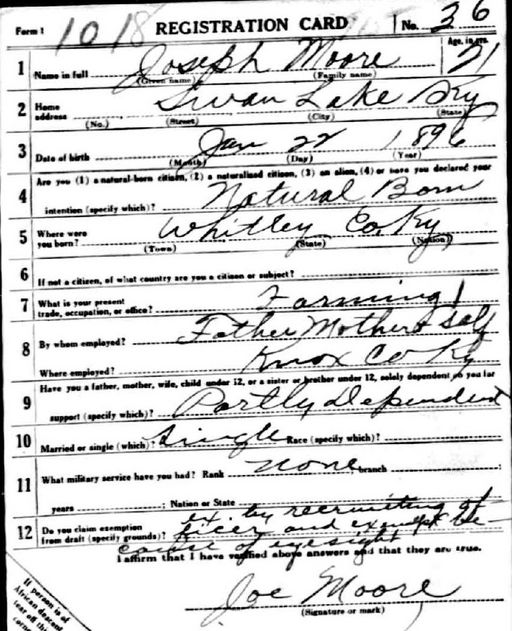 Form 1 1018 REGISTRATION CARD No. 36
1 Name in full Joseph Moore Age, in yrs. 21
(Given name) (Family name)
2 Home address Swan Lake Ky
(No.) (Street) (City) (State)
3 Date of birth Jan 22 1896
(Month) (Day) (Year)
Are you (1) a natural-born citizen, (2) a naturalized citizen, (3) an alien, (4) or have you declared your
4 intention (specify which)? Natural Born
5 Where were you born? Whitley Co. Ky
(Town) (State) (Nation)
6 If not a citizen, of what country are you a citizen or subject?
7 What is your present trade, occupation, or office? Farming
8 By whom employed? Father Mother & Self
Where employed? Knox Co Ky
Have you a father, mother, wife, child under 12, or a sister or brother under 12, solely dependent on you for
9 support (specify which)? Partly Dependent
10 Married or single (which)? Single Race (specify which)?
11 What military service have you had? Rank none branch
years ; Nation or State
12 Do you claim exemption from draft (specify grounds)? by recruiting of-
ficer and exempt be-
cause of eyesight
I affirm that I have verified above answers and that they are true.
Joe Moore
(Signature or mark)
If person is of
African descent
tear off this
corner